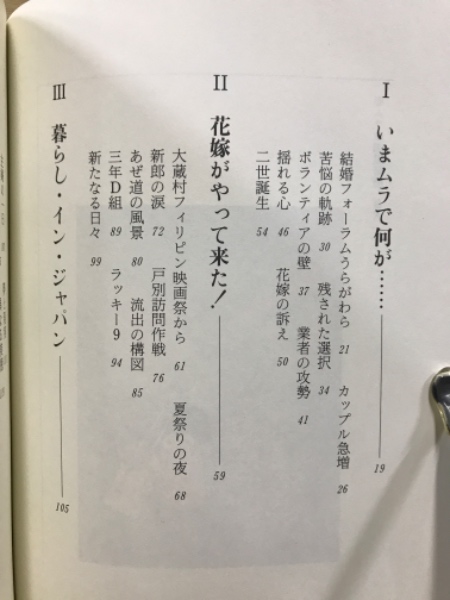 I いまムラで何が…… 19
結婚フォーラムうらがわら 21 カップル急増 26
苦悩の軌跡 30 残された選択 34
ボランティアの壁 37 業者の攻勢 41
揺れる心 46 花嫁の訴え 50
二世誕生 54
II 花嫁がやって来た！ 59
大蔵村フィリピン映画祭から 61 夏祭りの夜 68
新郎の涙 72 戸別訪問作戦 76
あぜ道の風景 80 流出の構図 85
三年D組 89 ラッキー9 94
新たなる日々 99
III 暮らし・イン・ジャパン 105